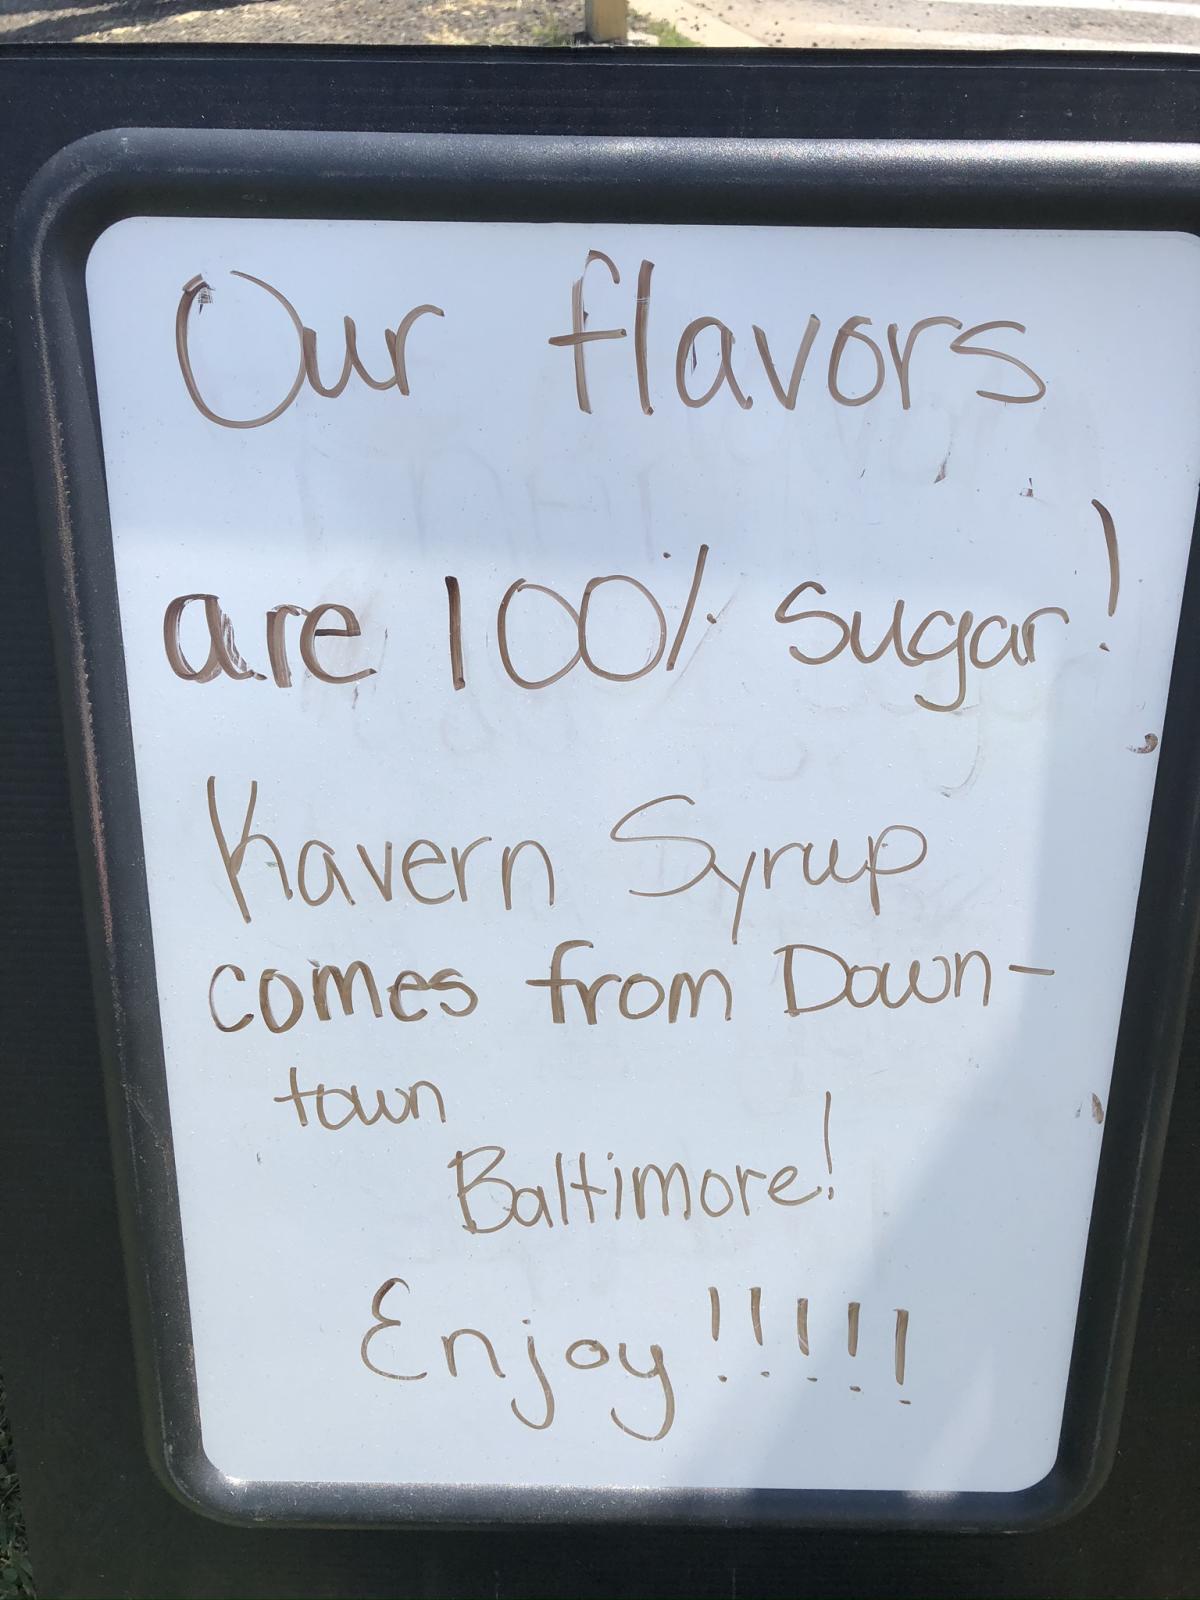 Our flavors
are 100% Sugar!
Kavern Syrup
comes from Down-
town
Baltimore!
Enjoy!!!!!